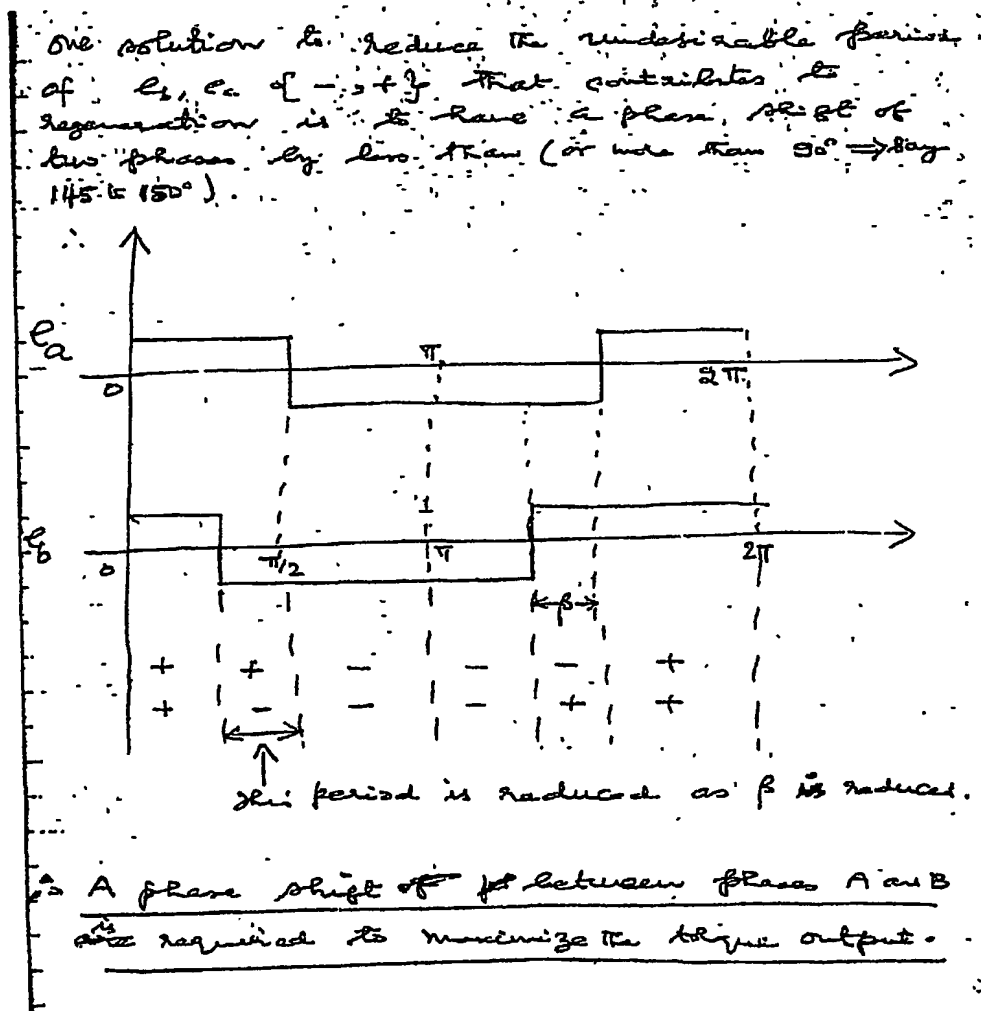 one solution to reduce the undesirable period
of e_b, e_a { -, + } that contributes to
regeneration is to have a phase shift of
two phases by less than (or more than 90° ⇒ say
145 to 150°).
∴
e_a
0
π
2π
e_b
0
π/2
π
2π
β
+ + - - - +
+ - - - + +
This period is reduced as β is reduced.
A phase shift of between phases A and B
is required to maximize the torque output.